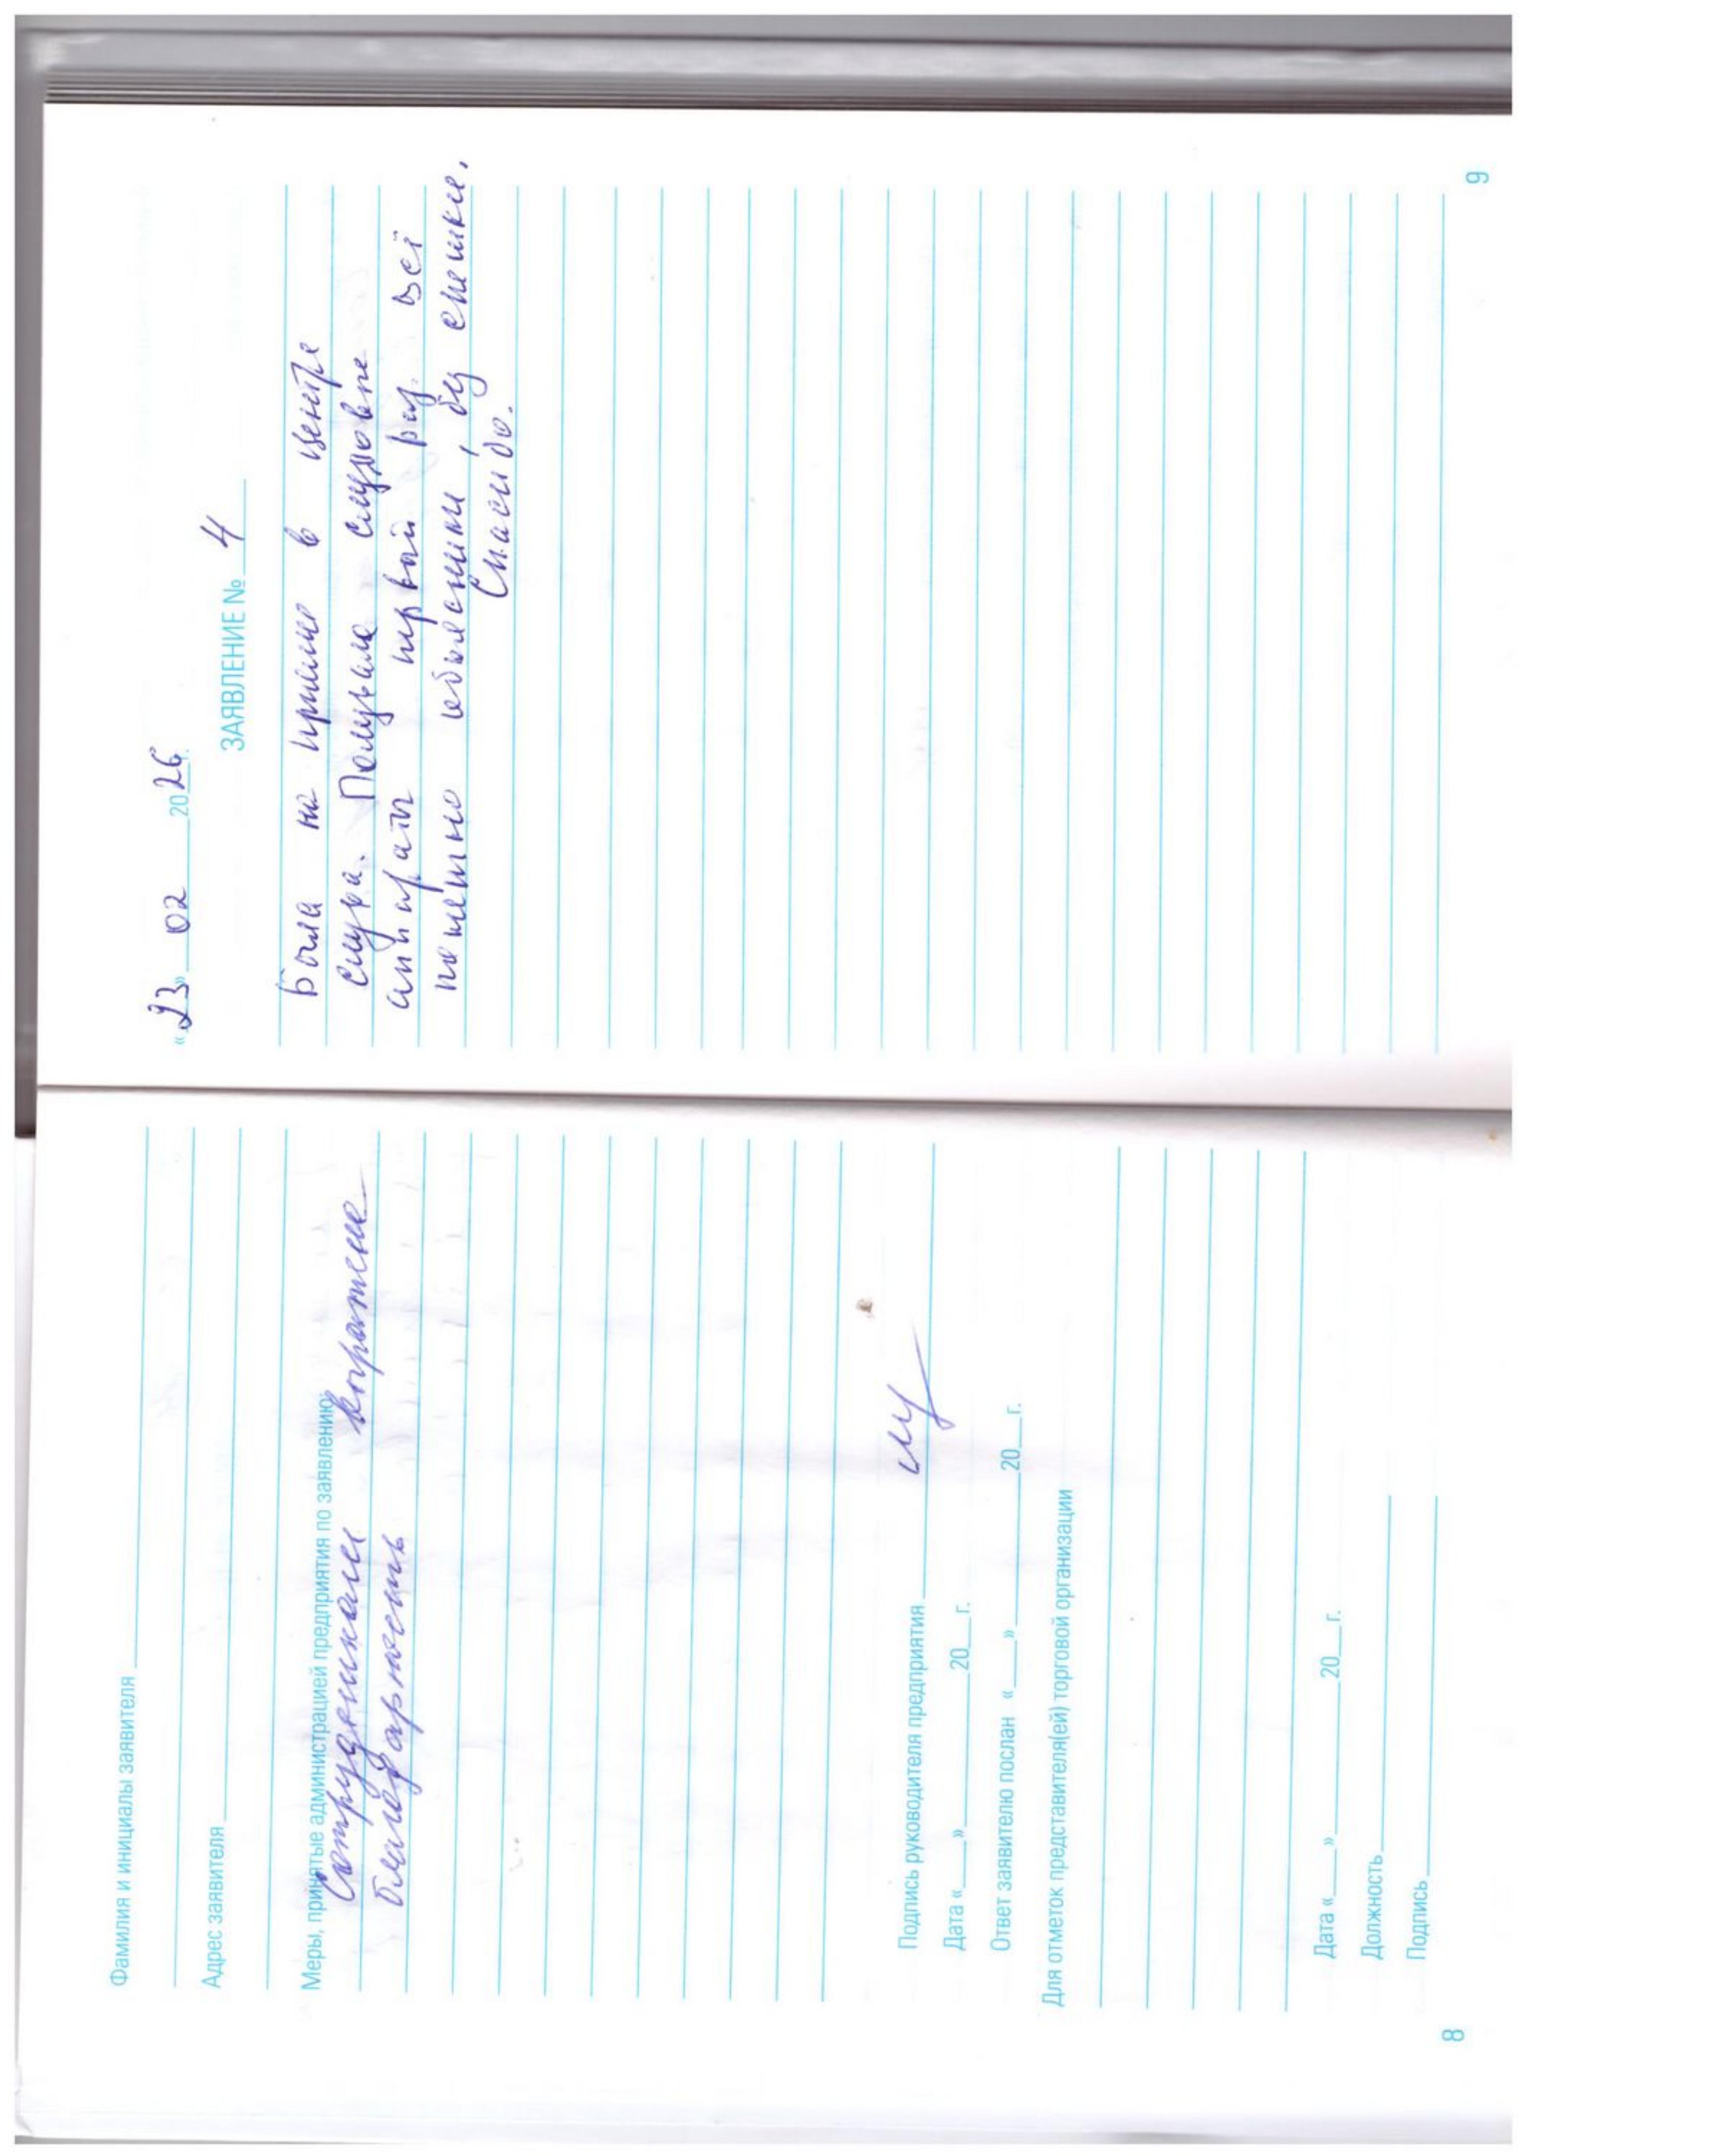 Фамилия и инициалы заявителя
Адрес заявителя
Меры, принятые администрацией предприятия по заявлению:
Сотрудникам выражена
благодарность
Подпись руководителя предприятия
Дата «___»________20__г.
Ответ заявителю послан «___»________20__г.
Для отметок представителя(ей) торговой организации
Дата «___»________20__г.
Должность
Подпись
8
«23» 02 2026г.
ЗАЯВЛЕНИЕ № 4
Была на приеме в центре
слуха. Получила слуховые
аппараты первый раз. Всё
понятно объяснили, без спешки.
Спасибо.
9